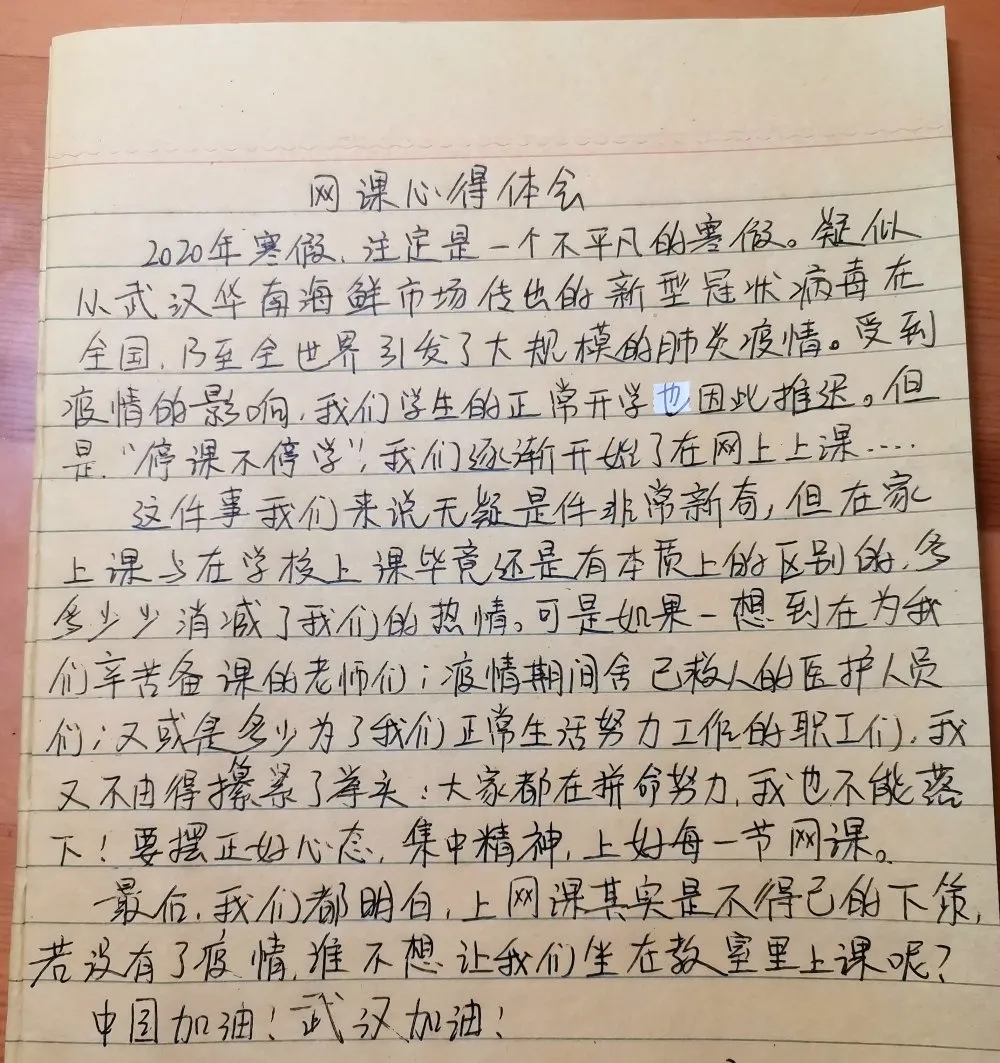 网课心得体会
2020年寒假,注定是一个不平凡的寒假。疑似
从武汉华南海鲜市场传出的新型冠状病毒在
全国,乃至全世界引发了大规模的肺炎疫情。受到
疫情的影响,我们学生的正常开学也因此推迟。但
是,“停课不停学”,我们逐渐开始了在网上上课……
这件事我们来说无疑是件非常新奇,但在家
上课与在学校上课毕竟还是有本质上的区别的,多
多少少消减了我们的热情。可是如果一想到在为我
们辛苦备课的老师们;疫情期间舍己救人的医护人员
们;又或是多少为了我们正常生活努力工作的职工们,我
又不由得攥紧了拳头:大家都在拼命努力,我也不能落
下!要摆正好心态,集中精神,上好每一节网课。
最后,我们都明白,上网课其实是不得已的下策,
若没有了疫情,谁不想让我们坐在教室里上课呢?
中国加油!武汉加油!